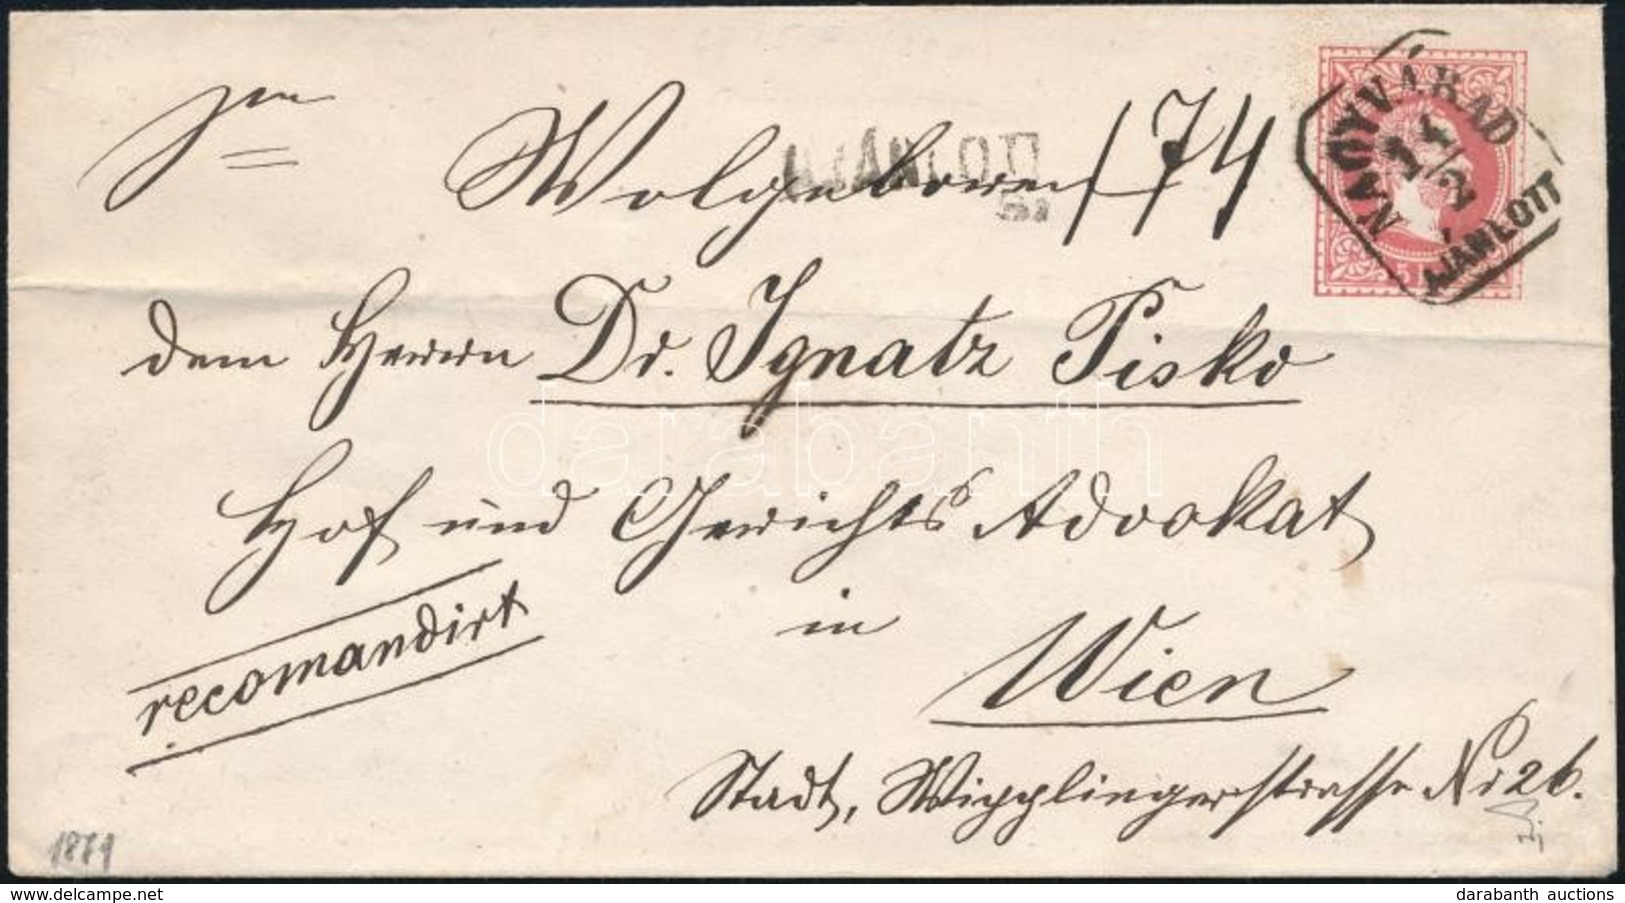 Wolgeboren
174
AJÁNLOTT
NAGYVÁRAD
14/2
AJÁNLOTT
5
dem Herrn Dr. Ignatz Pisko
Hof und Gerichts Advokat
in
Wien
recomandirt
Stadt, Wipplingerstrasse Nr 26.
darabanth
darabanth auctions